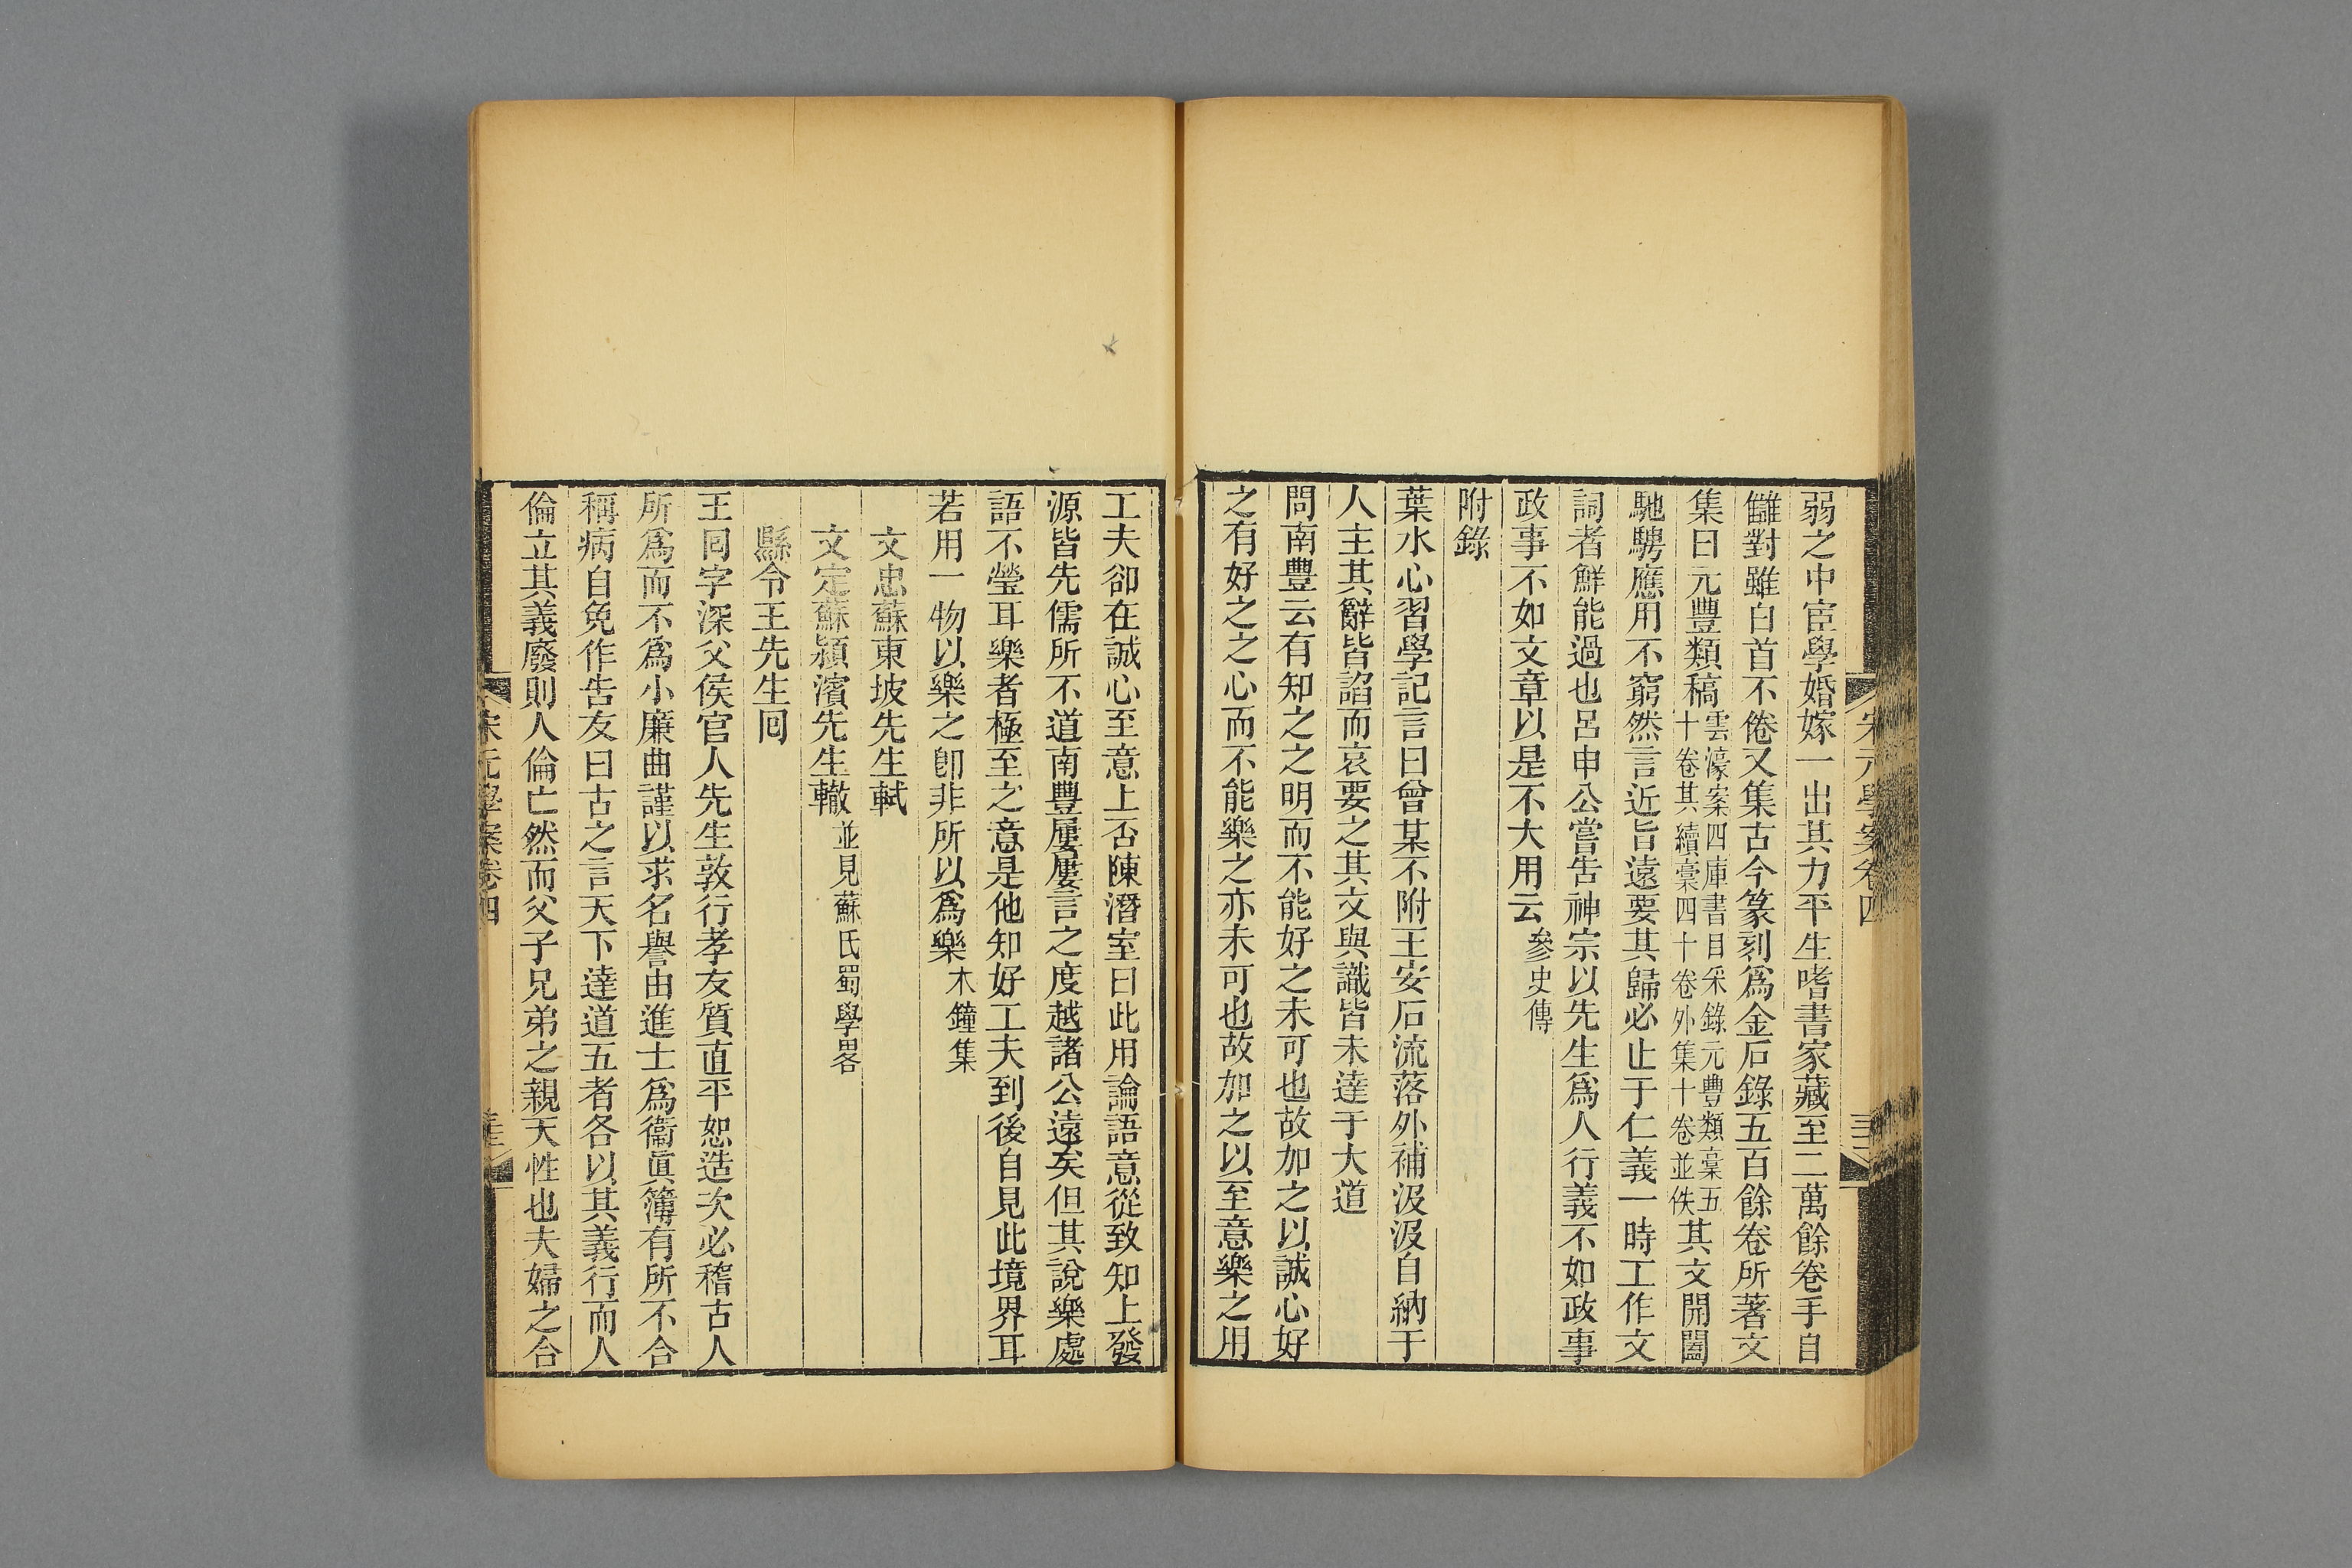 弱之中宦學婚嫁一出其力平生嗜書家藏至二萬餘卷手自
讎對雖白首不倦又集古今篆刻爲金石錄五百餘卷所著文
集曰元豐類稿雲濠案四庫書目采錄元豐類稾五十卷其續稾四十卷外集十卷並佚其文開闔
馳騁應用不窮然言近旨遠要其歸必止于仁義一時工作文
詞者鮮能過也呂申公嘗告神宗以先生爲人行義不如政事
政事不如文章以是不大用云參史傳
附錄
葉水心習學記言曰曾某不附王安石流落外補汲汲自納于
人主其辭皆諂而哀要之其文與識皆未達于大道
問南豐云有知之之明而不能好之未可也故加之以誠心好
之有好之之心而不能樂之亦未可也故加之以至意樂之用
工夫卻在誠心至意上否陳潛室曰此用論語意從致知上發
源皆先儒所不道南豐屢屢言之度越諸公遠矣但其說樂處
語不瑩耳樂者極至之意是他知好工夫到後自見此境界耳
若用一物以樂之卽非所以爲樂木鐘集
文忠蘇東坡先生軾
文定蘇潁濱先生轍並見蘇氏蜀學畧
縣令王先生回
王回字深父侯官人先生敦行孝友質直平恕造次必稽古人
所爲而不爲小廉曲謹以求名譽由進士爲衞眞簿有所不合
稱病自免作告友曰古之言天下達道五者各以其義行而人
倫立其義廢則人倫亡然而父子兄弟之親天性也夫婦之合
宋元學案卷四